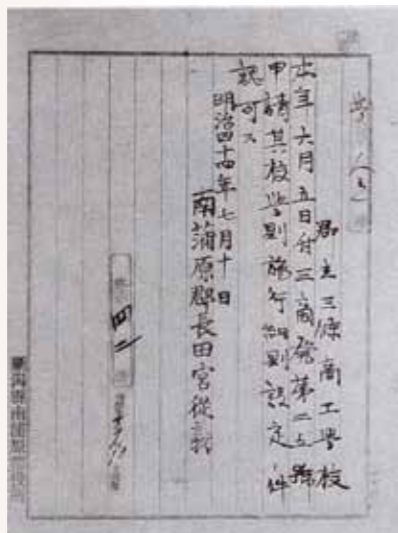 郡立三條商工學校
本年六月五日付三商発第二五號
申請其校學則施行細則設定ノ件
認可ス
明治四十四年七月十日
南蒲原郡長田宮從義
四二
新潟縣南蒲原郡役所